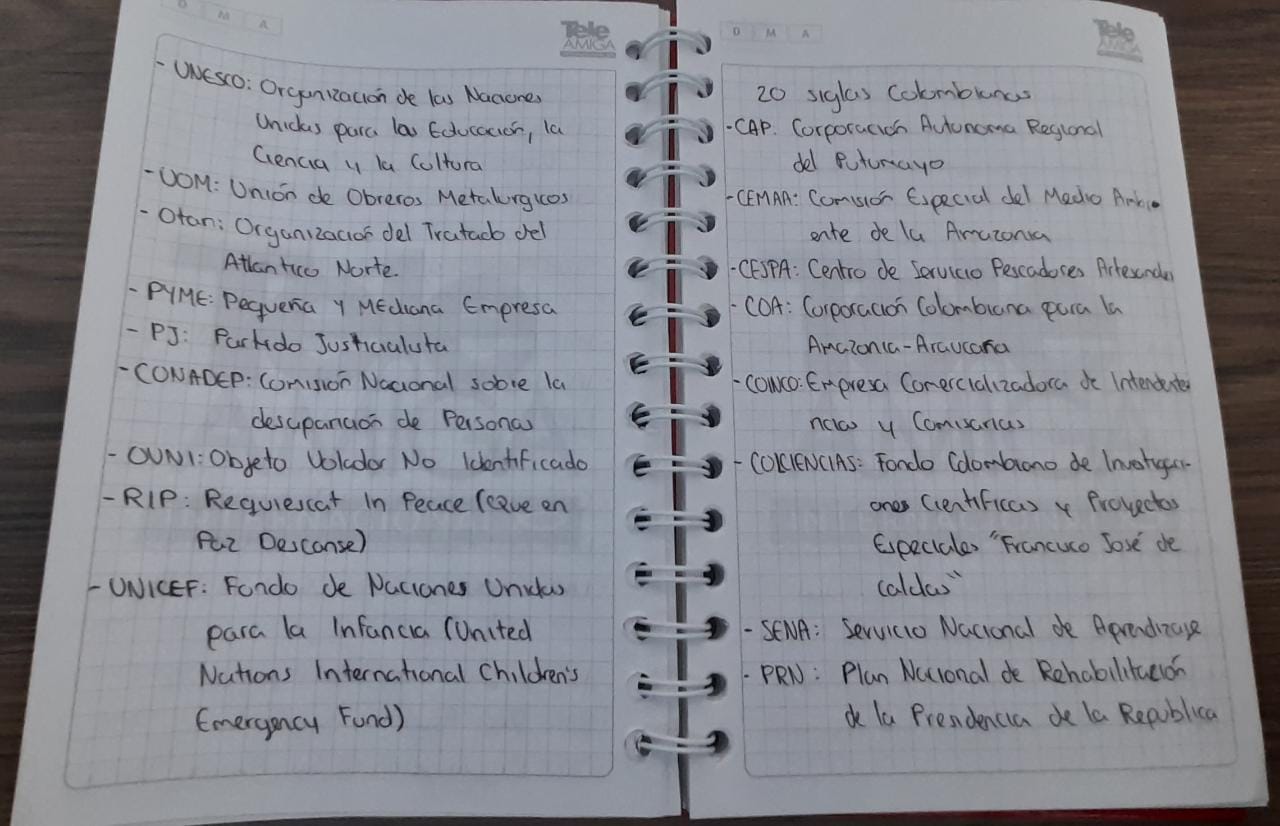 D M A
Tele
AMIGA
- UNESCO: Organización de las Naciones
Unidas para la Educación, la
Ciencia y la Cultura
- UOM: Unión de Obreros Metalurgicos
- Otan: Organización del Tratado del
Atlantico Norte.
- PYME: Pequeña y MEdiana Empresa
- PJ: Partido Justicialista
- CONADEP: Comisión Nacional sobre la
desaparición de Personas
- OVNI: Objeto Volador No Identificado
- RIP: Requiescat In Peace (Que en
Paz Descanse)
- UNICEF: Fondo de Naciones Unidas
para la Infancia (United
Nations International Children's
Emergency Fund)
D M A
Tele
AMIGA
20 siglas Colombianas
- CAP. Corporación Autonoma Regional
del Putumayo
- CEMAA: Comisión Especial del Medio Ambi
ente de la Amazonia
- CESPA: Centro de Servicio Pescadores Artesanales
- COA: Corporación Colombiana para la
Amazonia-Araucaña
- COINCO: Empresa Comercializadora de
ncias y Comisarias
- COLCIENCIAS: Fondo Colombiano de Investigaci-
ones Cientificas y Proyectos
Especiales "Francisco José de
Caldas"
- SENA: Servicio Nacional de Aprendizaje
- PRN: Plan Nacional de Rehabilitación
de la Presidencia de la Republica